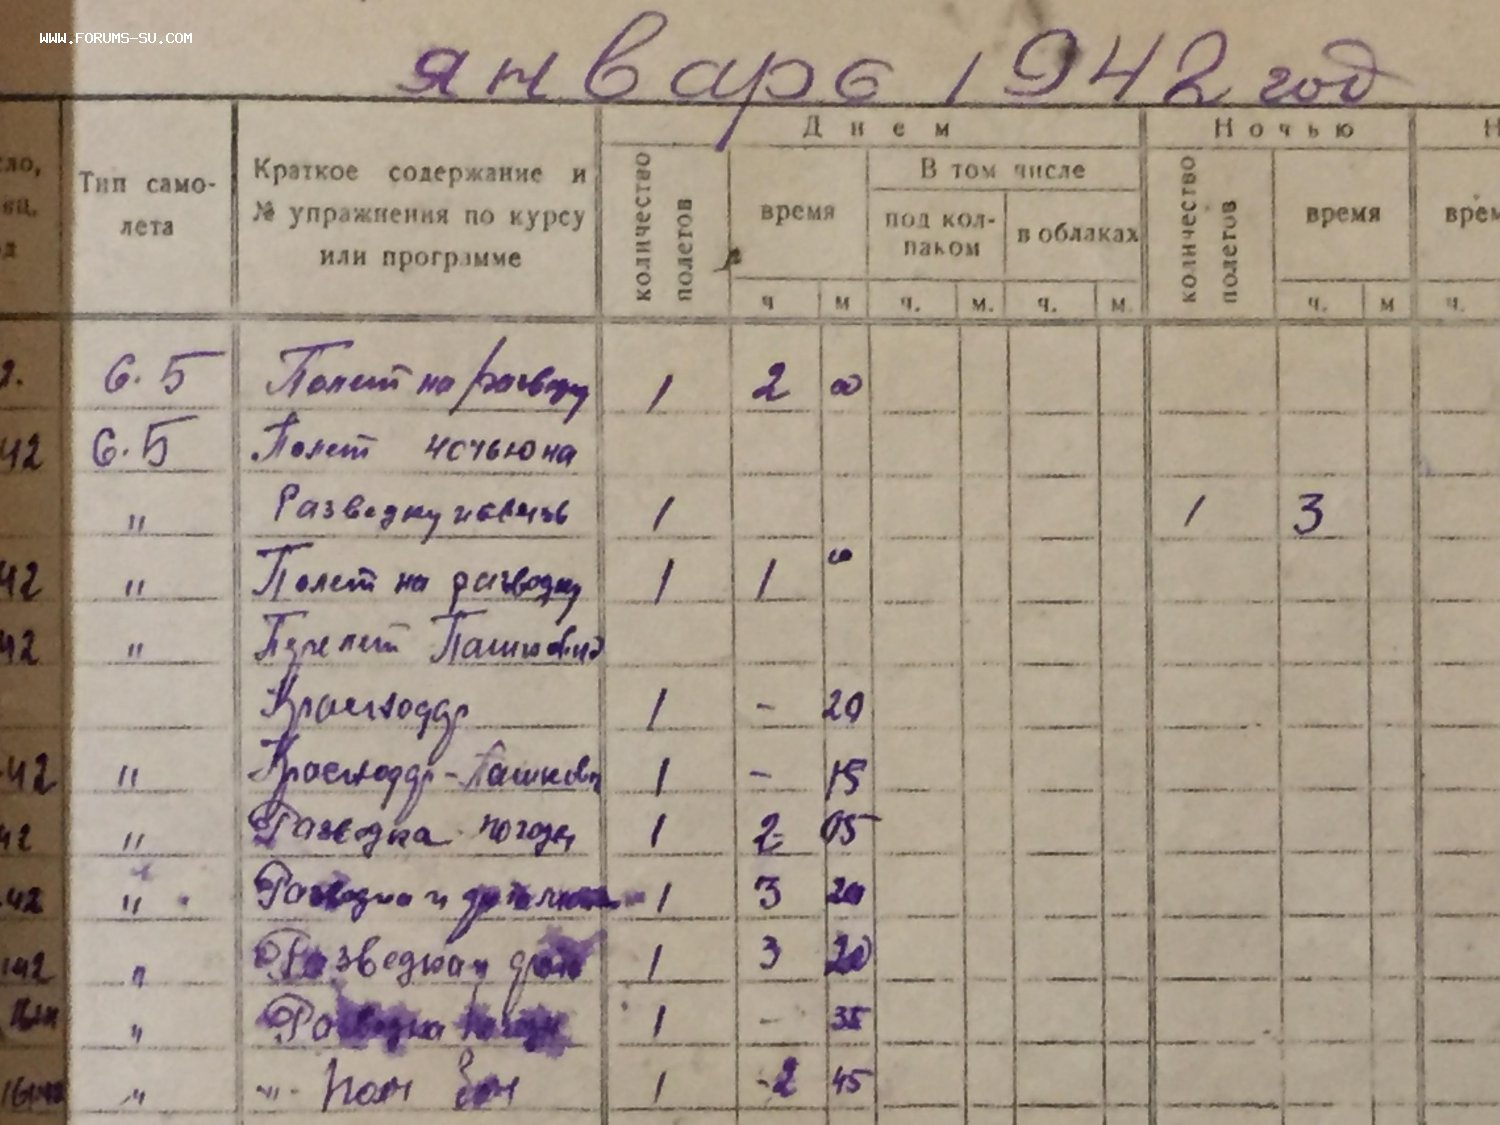 WWW.FORUMS-SU.COM
январь 1942 год
Днем Ночью
Тип само-
лета
Краткое содержание и
№ упражнения по курсу
или программе
количество
полетов
время
В том числе
под кол-
паком
в облаках
количество
полетов
время
ч м ч. м. ч. м. ч. м ч.
2. С.Б Полет на разведку 1 2 00
42 С.Б Полет ночью на
" Разведку 1 1 3
42 " Полет на разведку 1 1 00
42 " Перелет Пашковск
Краснодар 1 - 20
42 " Краснодар-Пашковск 1 - 15
42 " Разведка погоды 1 2 05
42 " Разведка и 1 3 20
42 " Разведка и 1 3 20
" Разведка погоды 1 - 35
" -"- 1 -2 45